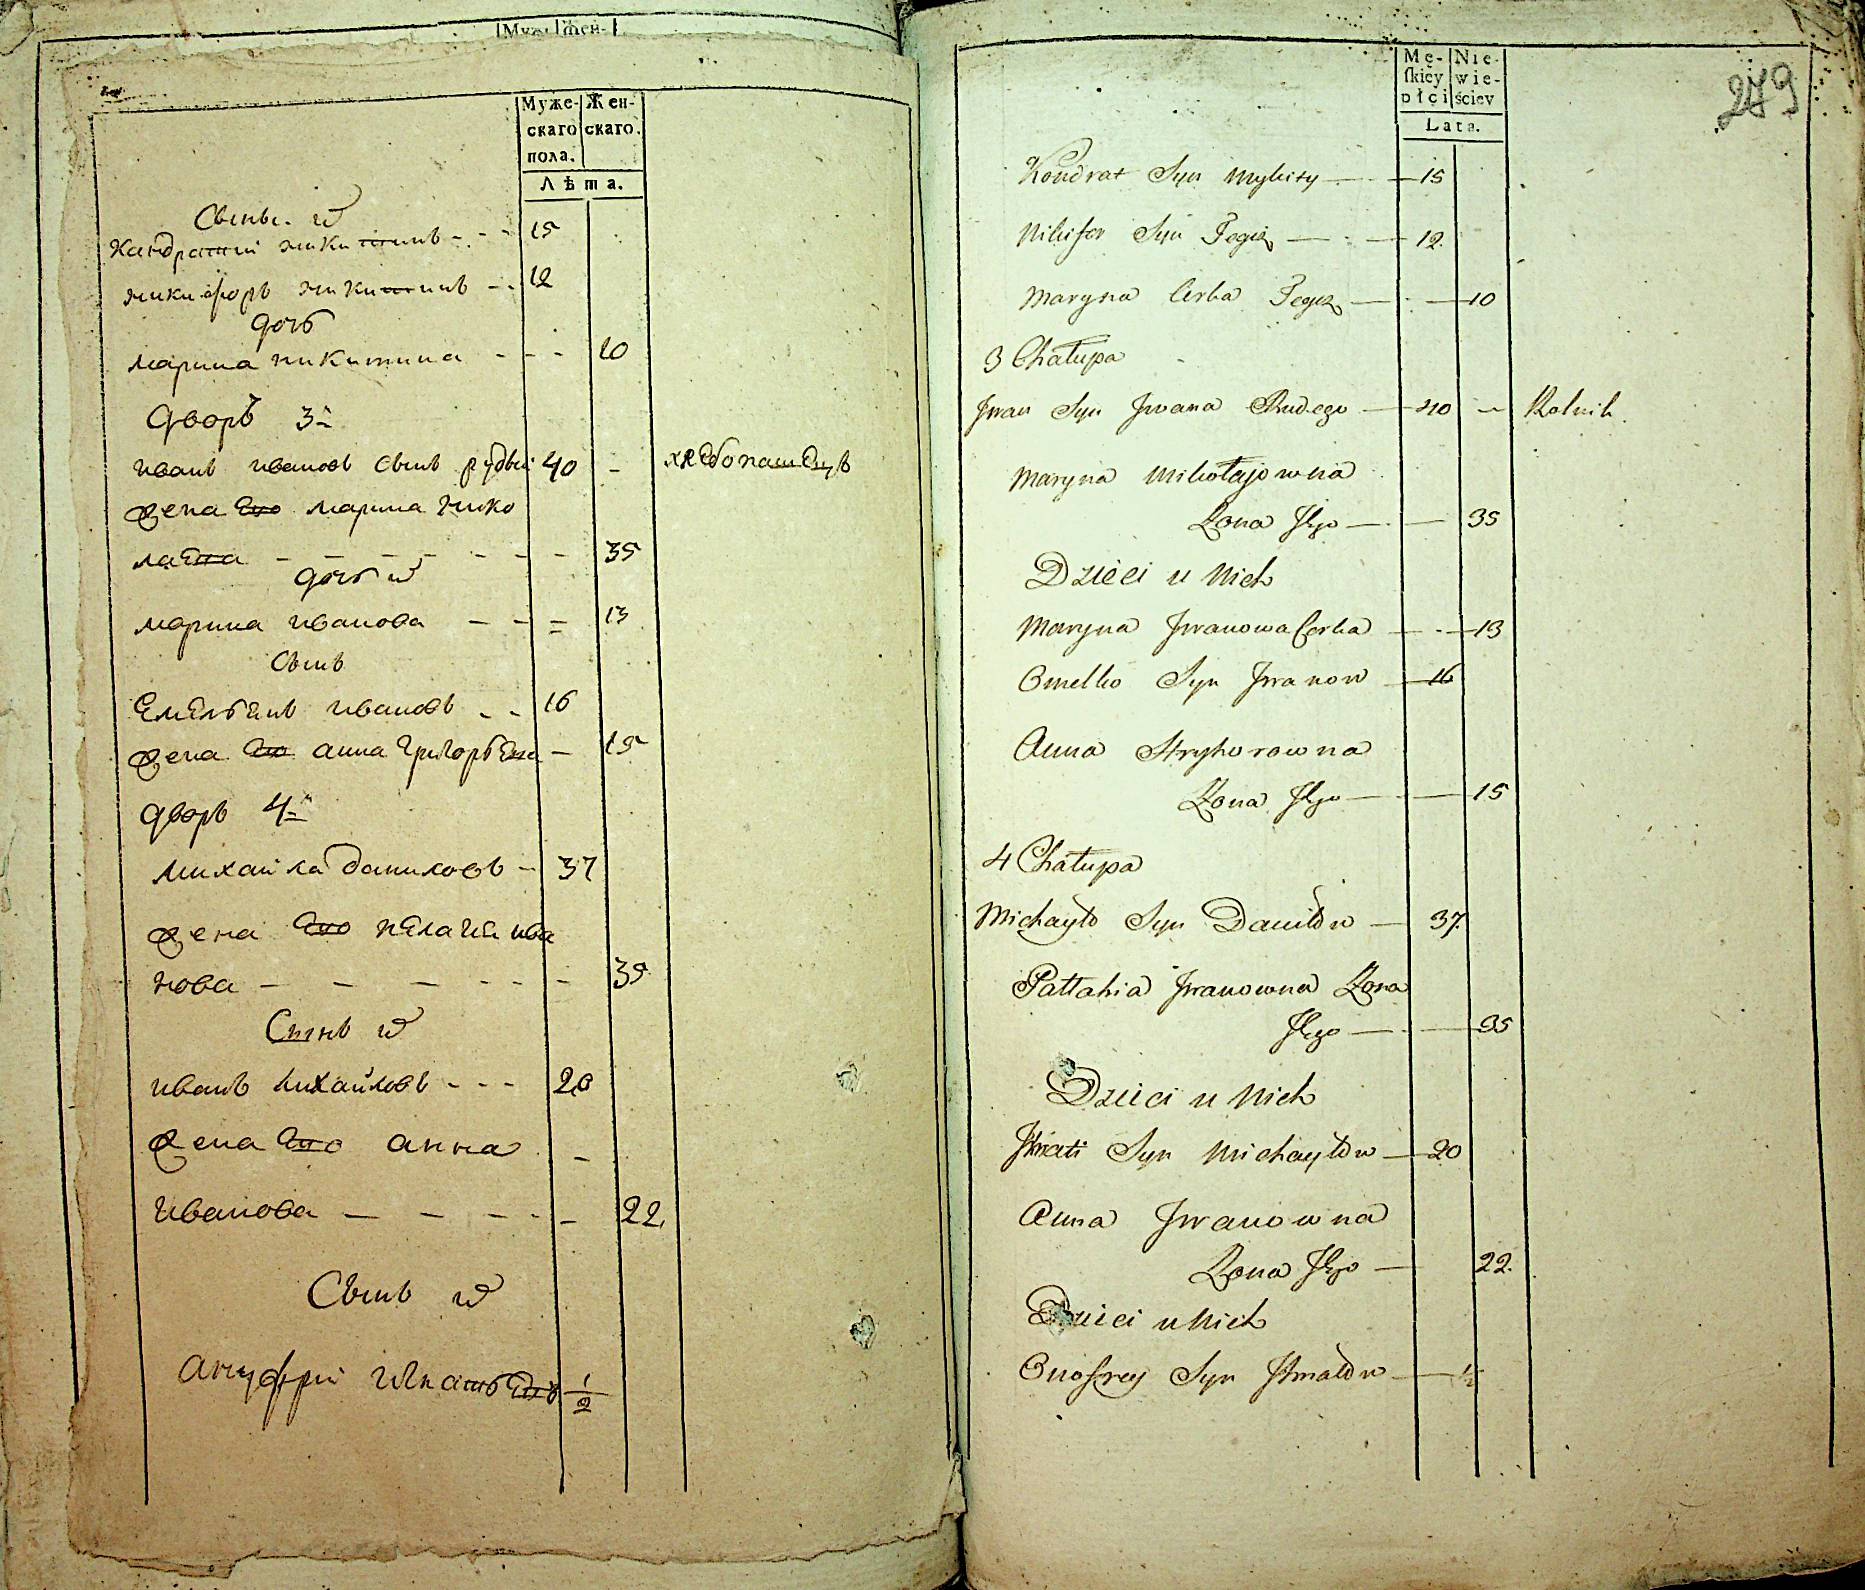 Муж: Жен-
Муже-
скаго
пола.
Жен-
скаго.
Лѣта.
Сынъ. и
Кандратій никитинъ - - - 15
никифоръ никитинъ - - 12
дочь
марина никитина - - - 10
дворъ 3й
иванъ ивановъ сынъ рудый 40 - хлебопашецъ
жена Его марина нико
лаева - - - - - - 35
дочь и
марина иванова - - = 13
сынъ
Емельянъ ивановъ - - 16
жена Его анна григорьева - 15
дворъ 4й
михайла даниловъ - 37
жена Его пелагея ива
нова - - - - - - 35
Сынъ и
иванъ михайловъ - - - 20
жена Его анна -
иванова - - - - - 22,
Сынъ и
ануфрий игнатьевъ 1/2
279
Mę-
skiey
płci
Nie-
wie-
ściey
Lata.
Kondrat Syn Mykity — — 15
Nikifor Syn Tegoż — — 12
Maryna Corka Tegoż — — 10
3 Chałupa
Jwan Syn Jwana Rudego — 40 — Rolnik
Maryna Mikołajowna
Żona Jego — — 35
Dzieci u Nich
Maryna Jwanowa Corka — — 13
Omelko Syn Jwanow — 16
Anna Hryhorowna
Żona Jego — — 15
4 Chałupa
Michayło Syn Daniłow — 37.
Pałłahia Jwanowna Żona
Jego — — 35
Dzieci u Nich
Syn Michayłow — 20
Anna Jwanowna
Żona Jego — 22.
Dzieci u Nich
Onofrey Syn — 1/2